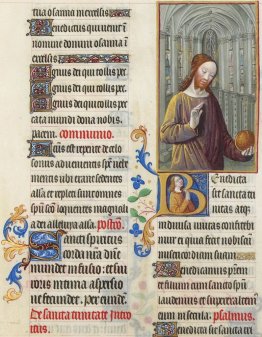 tua osanna in excelsis
Benedictus qui uenit in
nomine domini osanna i
excelsis
Agnus dei qui tollis pec
Agnus dei qui tollis pec
Agnus dei qui tollis pec
cata mundi dona nobis
pacem. communio.
Factus est repente de celo
sonus aduenientis spiritus
ubi erant sedentes
alla et repleti sunt omnes
spiritu sco loquentes magnali
a dei alleluya alla. postco
Sancti spiritus
corda nra dne
mundet infusio et sui
roris intima aspersio
ne fecundet. per eiusdem
De sancta trinitate Intro
itus.
Benedicta
sit sancta tri
nitas atq
indiuisa unitas confitebi
mur ei quia fecit nobiscu
misericordiam suam
Benedicamus patrem
et filium cum sancto spu
laudemus et superexaltem
eum in secula. psalmus.
Benedicta sit sancta tri